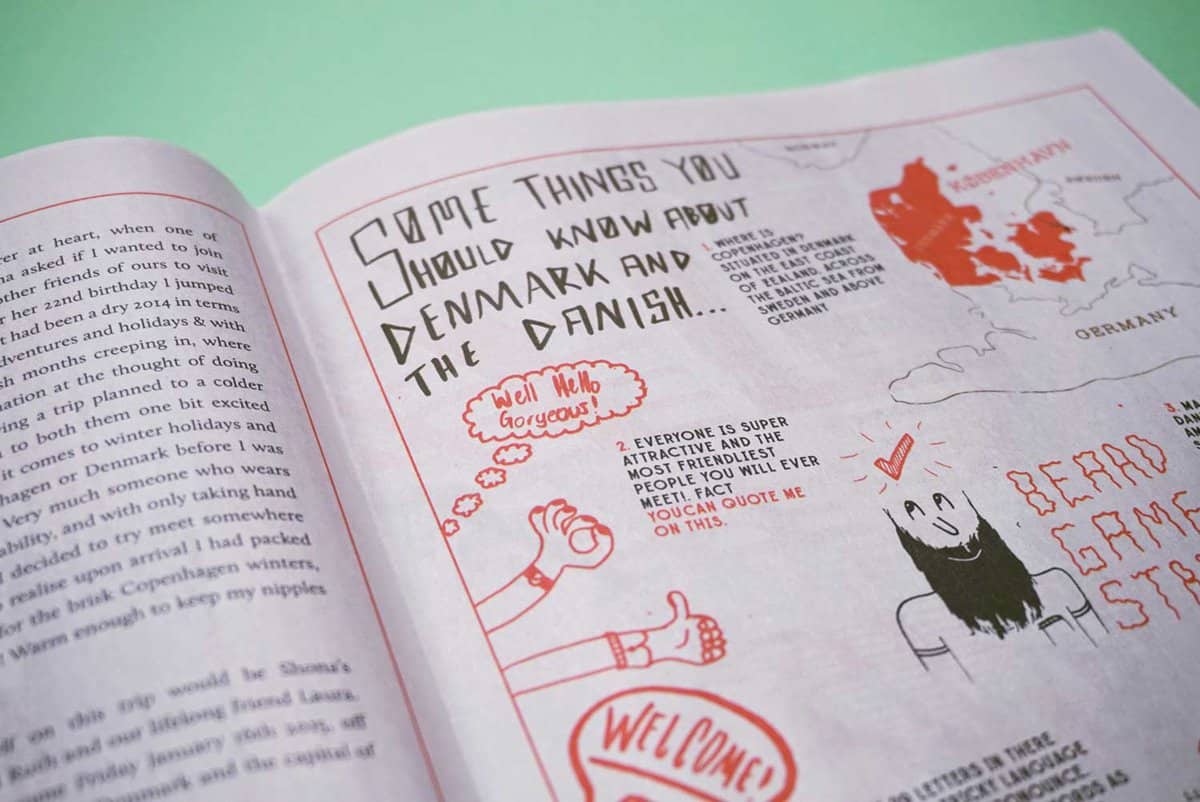 er at heart, when one of
na asked if I wanted to join
other friends of ours to visit
her 22nd birthday I jumped
had been a dry 2014 in terms
dventures and holidays & with
sh months creeping in, where
ation at the thought of doing
ing a trip planned to a colder
to both them one bit excited
it comes to winter holidays and
hagen or Denmark before I was
Very much someone who wears
ability, and with only taking hand
decided to try meet somewhere
realise upon arrival I had packed
for the brisk Copenhagen winters,
! Warm enough to keep my nipples
on this trip would be Shona's
Ruth and our lifelong friend Laura.
Friday January 16th 2015, off
Denmark and the capital of
SOME THINGS YOU
SHOULD KNOW ABOUT
DENMARK AND
THE DANISH...
1. WHERE IS
COPENHAGEN?
SITUATED IN DENMARK
ON THE EAST COAST
OF ZEALAND. ACROSS
THE BALTIC SEA FROM
SWEDEN AND ABOVE
GERMANY
NORWAY
KØBENHAVN
SWEDEN
DENMARK
GERMANY
Well Hello
Gorgeous!
2. EVERYONE IS SUPER
ATTRACTIVE AND THE
MOST FRIENDLIEST
PEOPLE YOU WILL EVER
MEET!. FACT
YOUCAN QUOTE ME
ON THIS.
3. MA
DAN
BEARD
GAME
STR
WELCOME!
LETTERS IN THERE
LANGUAGE
AS